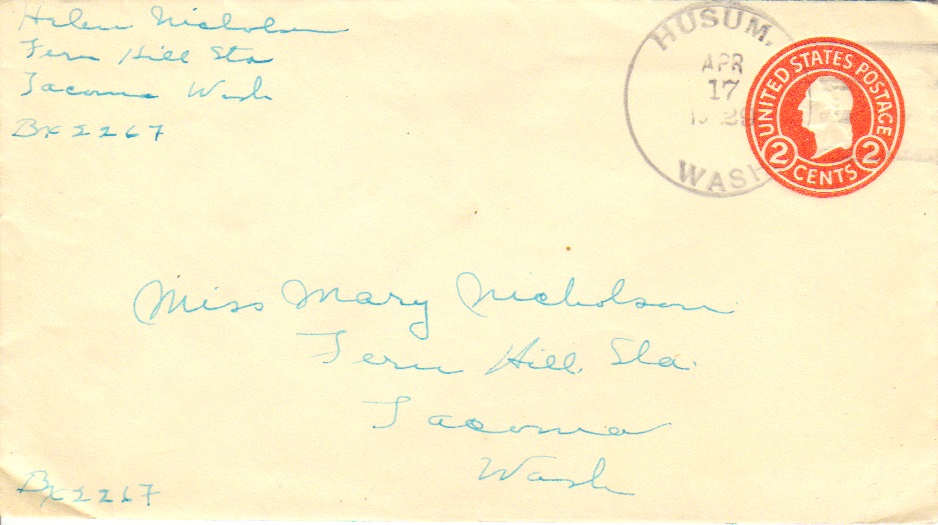 Helen Nicholson
Fern Hill Sta
Tacoma Wash
Bx 2267
HUSUM,
APR
17
1929
WASH
UNITED STATES POSTAGE
2 CENTS 2
Miss Mary Nicholson
Fern Hill Sta.
Tacoma
Wash
Bx 2267